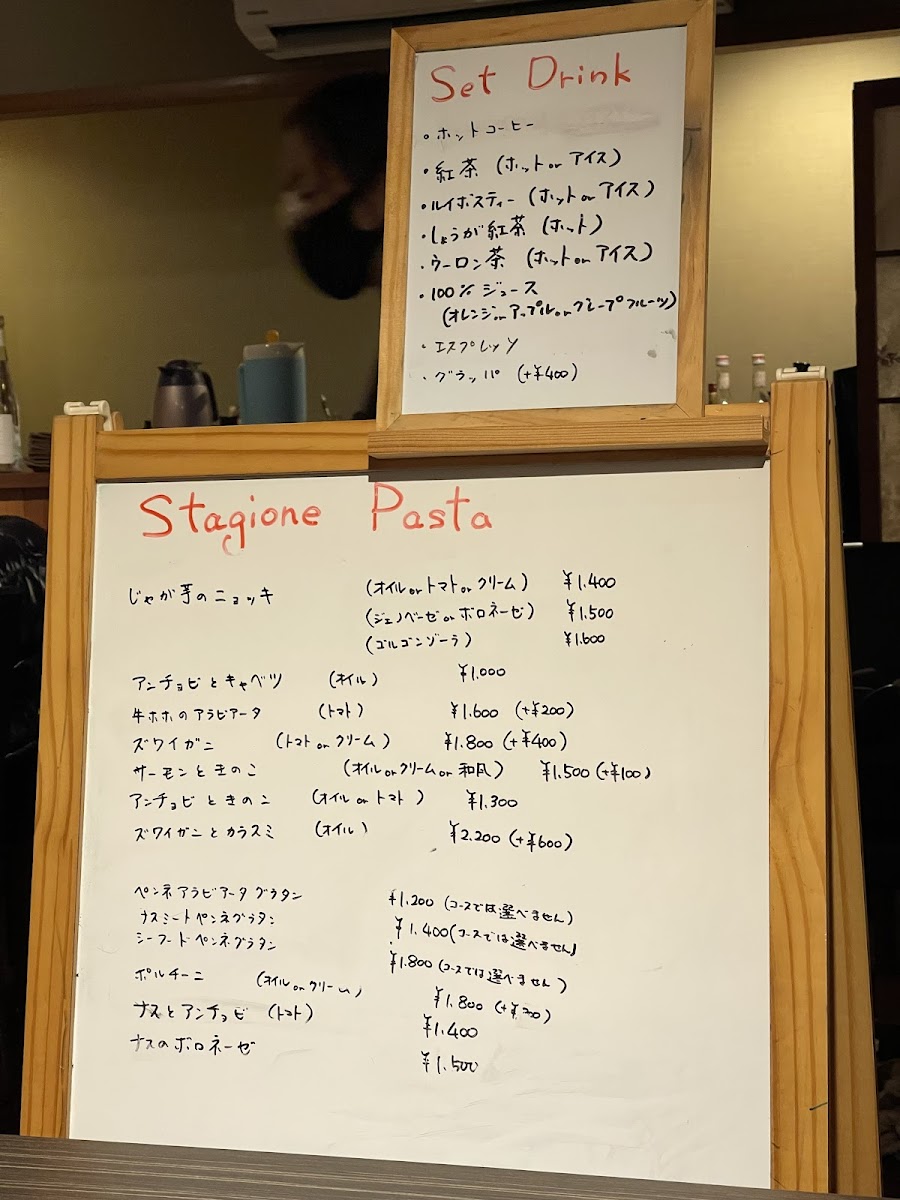 Set Drink
・ホットコーヒー
・紅茶 (ホットorアイス)
・ルイボスティー (ホットorアイス)
・しょうが紅茶 (ホット)
・ウーロン茶 (ホットorアイス)
・100%ジュース
(オレンジorアップルorグレープフルーツ)
・エスプレッソ
・グラッパ (+¥400)
Stagione Pasta
じゃが芋のニョッキ (オイルorトマトorクリーム) ¥1.400
(ジェノベーゼorボロネーゼ) ¥1.500
(ゴルゴンゾーラ) ¥1.600
アンチョビとキャベツ (オイル) ¥1.000
牛ホホのアラビアータ (トマト) ¥1.600 (+¥200)
ズワイガニ (トマトorクリーム) ¥1.800 (+¥400)
サーモンときのこ (オイルorクリームor和風) ¥1.500 (+¥100)
アンチョビときのこ (オイルorトマト) ¥1.300
ズワイガニとカラスミ (オイル) ¥2.200 (+¥600)
ペンネアラビアータグラタン ¥1.200 (コースでは選べません)
ナスミートペンネグラタン ¥1.400 (コースでは選べません)
シーフードペンネグラタン ¥1.800 (コースでは選べません)
ポルチーニ (オイルorクリーム) ¥1.800
ナスとアンチョビ (トマト) ¥1.400
ナスのボロネーゼ ¥1.500